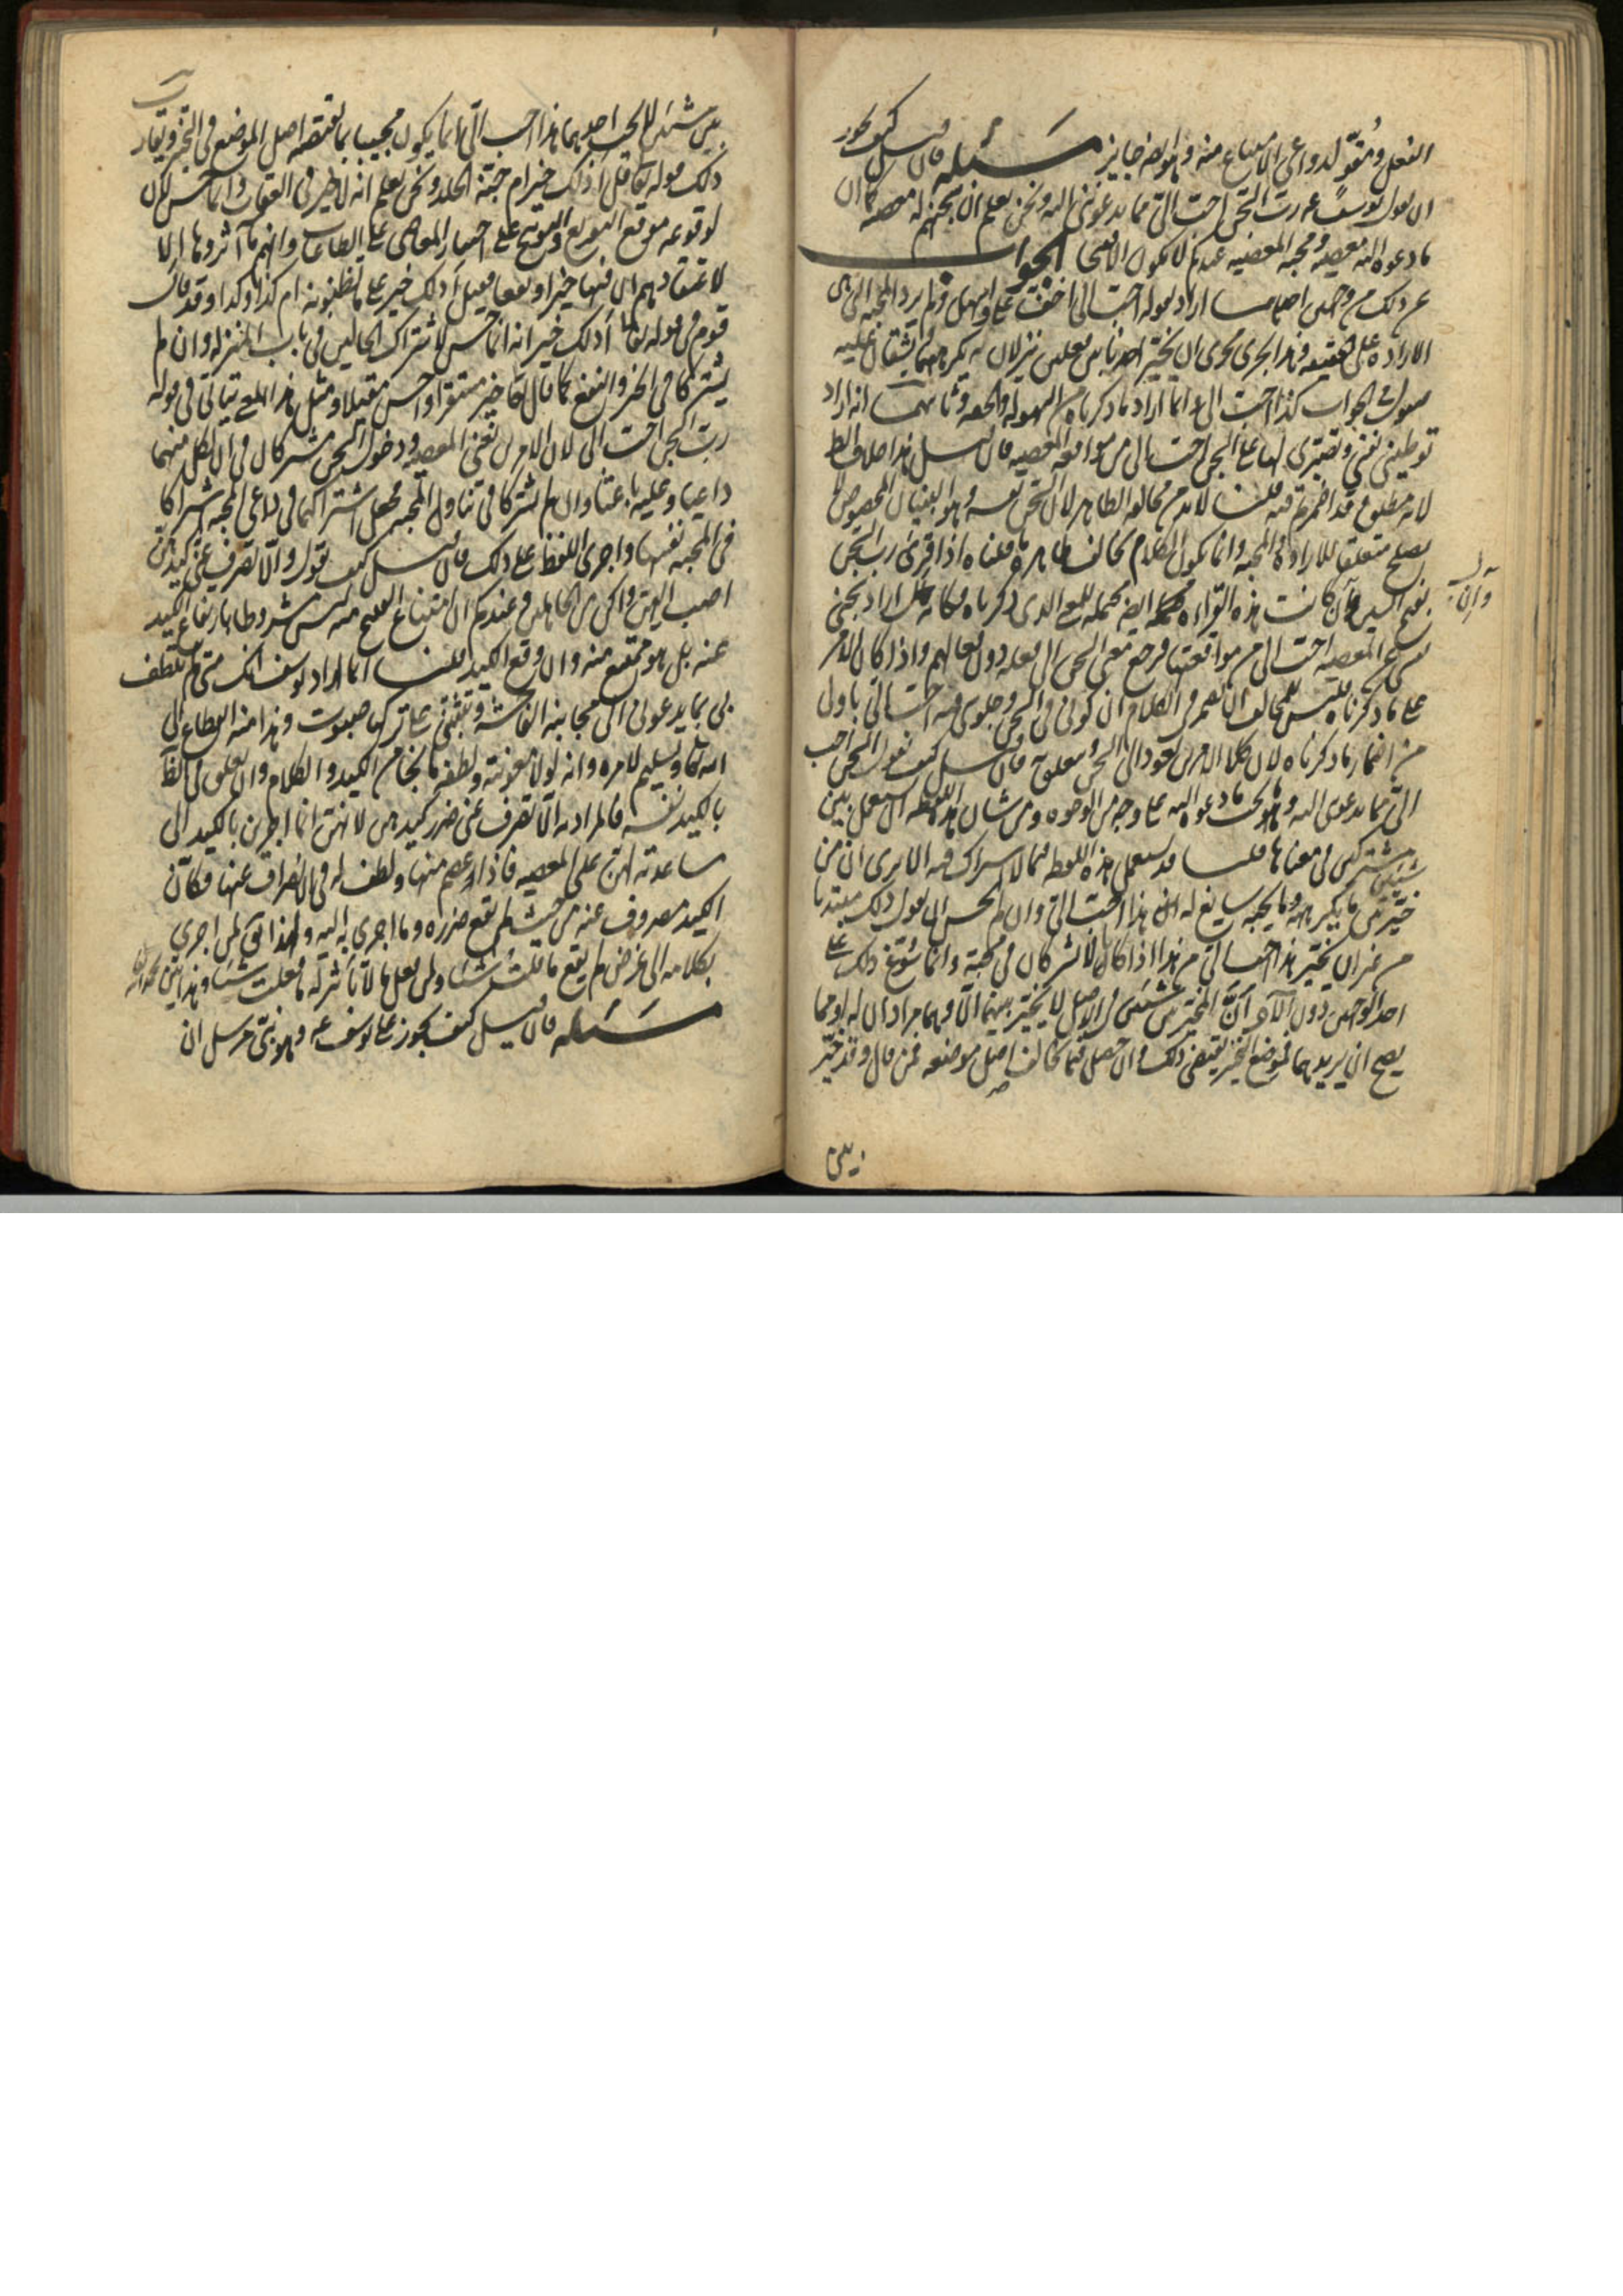 الفعل ومقوّ لدواعي الامتناع منه وهو ايضا جايز مسئله فان قيل كيف يجوز
ان يقول يوسف عه رب السجن احب الي مما يدعونني اليه ونحن نعلم ان سجنهم له معصيه كما ان
ما دعوه اليه معصيه ومحبه المعصيه عندكم لا تكون الا قبيحا الجواب
عن ذلك من وجهين احدهما اراد بقوله احب الي اخف علي واسهل ولم يرد المحبه التي هي
الاراده على الحقيقه وهذا يجري مجرى ان يخير احدنا بين فعلين ينزلان به يكرههما ويشقان عليه
فيقول في الجواب كذا احب الي وانما اراد ما ذكرناه من السهوله والخفه وثانيهما انه اراد
توطيني نفسي وتصبيري لها على السجن احب الي من مواقعه المعصيه فان قيل هذا خلاف الظ
لانه مطلق وقد اضمرتم فيه قلنا لا بد من مخالفه الظاهر لان السجن نفسه وهو البنيان المخصوص لا
يصلح متعلق للاراده والمحبه وانما يكون الكلام مخالف ظاهره ما قلناه اذا قرئ رب السجن
بفتح السين وان كانت هذه القراءه محتمله ايضا للمعنى الذي ذكرناه فكانه اراد سجني
نفسي عن المعصيه احب الي من مواقعتها فرجع معنى السجن الى فعله دون فعالهم واذا كان الامر
على ما ذكرناه فليس للمخالف ان يضمر في الكلام ان كوني في السجن وجلوسي فيه احب الي باولى
من اضمار ما ذكرناه لان كلا الامرين يعود الى السجن ومتعلق به فان قيل كيف يقول السجن احب
الي مما يدعونني اليه وهو لا يحب ما دعوه اليه على وجه من الوجوه ومن شان هذه اللفظه ان تستعمل بين
شيئين مشتركين في معناها قلنا قد تستعمل هذه اللفظه فيما لا اشتراك فيه الا ترى ان من
خيّر بين ما يكرهه وما يحبه سايغ له ان يقول هذا احب الي وان لم يحسن ان يقول ذلك مبتديا
من غير ان يخير هذا احب الي من هذا اذا كانا لا يشتركان في محبته وانما سوّغ ذلك على
احد الوجهين دون الآخر ان المخيّر بين شيئين في الاصل لا يخيّر بينهما الا وهما مرادان له او مما
يصح ان يريدهما فموضع التخير يقتضي ذلك وان حصل فيما يخالف اصل موضوعه فمن قال وقد خيّر
وان
بين
بين شيئين لا يحب احدهما هذا احب الي انما يكون مجيبا بما يقتضيه اصل الموضوع في التخير ويقارب
ذلك قوله تعا قل اذلك خير ام جنة الخلد ونحن نعلم انه لا خير في العقاب وانما حسن ذلك
لوقوعه موقع التقريع والتوبيخ على اختيار المعاصي على الطاعات وانهم ما آثروها الا
لاعتقادهم ان فيها خيرا ونفعا فقيل أذلك خير على ما تظنونه ام كذا وكذا وقد قال
قوم في قوله تعا أذلك خير انه انما حسن لاشتراك الحالين في باب المنزله وان لم
يشتركا في الخير والنفع كما قال تعا خير مستقرا واحسن مقيلا ومثل هذا المعنى يتاتى في قوله
رب السجن احب الي لان الامرين يعني المعصيه ودخول السجن مشتركان في ان لكل منهما
داعيا وعليه باعثا وان لم يشتركا في تناول المحبه فجعل اشتراكهما في داعي المحبه اشتراكا
في المحبه نفسها واجرى اللفظ على ذلك فان قيل كيف يقول والّا تصرف عني كيدهن
اصب اليهن واكن من الجاهلين وعندكم ان امتناع القبيح منه ليس مشروطا بارتفاع الكيد
عنه بل هو ممتنع منه وان وقع الكيد قلنا انما اراد يوسف انك متى لم تلطف
بي بما يدعوني الى مجانبة الفاحشه وتثبتني على تركها صبوت وهذا منه انقطاع الى
الله تعا وتسليم لامره وانه لولا معونته ولطفه ما نجا من الكيد والكلام وان تعلق في الظ
بالكيد نفسه فالمراد به الا تصرف عني ضرر كيدهن لانهن انما اجرين بالكيد الى
مساعدته لهن على المعصيه فاذا عصم منها ولطف له في الانصراف عنها فكان
الكيد مصروف عنه من حيث لم يقع ضرره وما اجري به اليه ولهذا يق لمن اجرى
بكلامه الى غرض لم يقع ما قلت شيئا ولمن فعل ما لا تاثير له ما فعلت شيئا وهذا بين بحمد الله
مسئله فان قيل كيف يجوز على يوسف عه وهو نبي مرسل ان